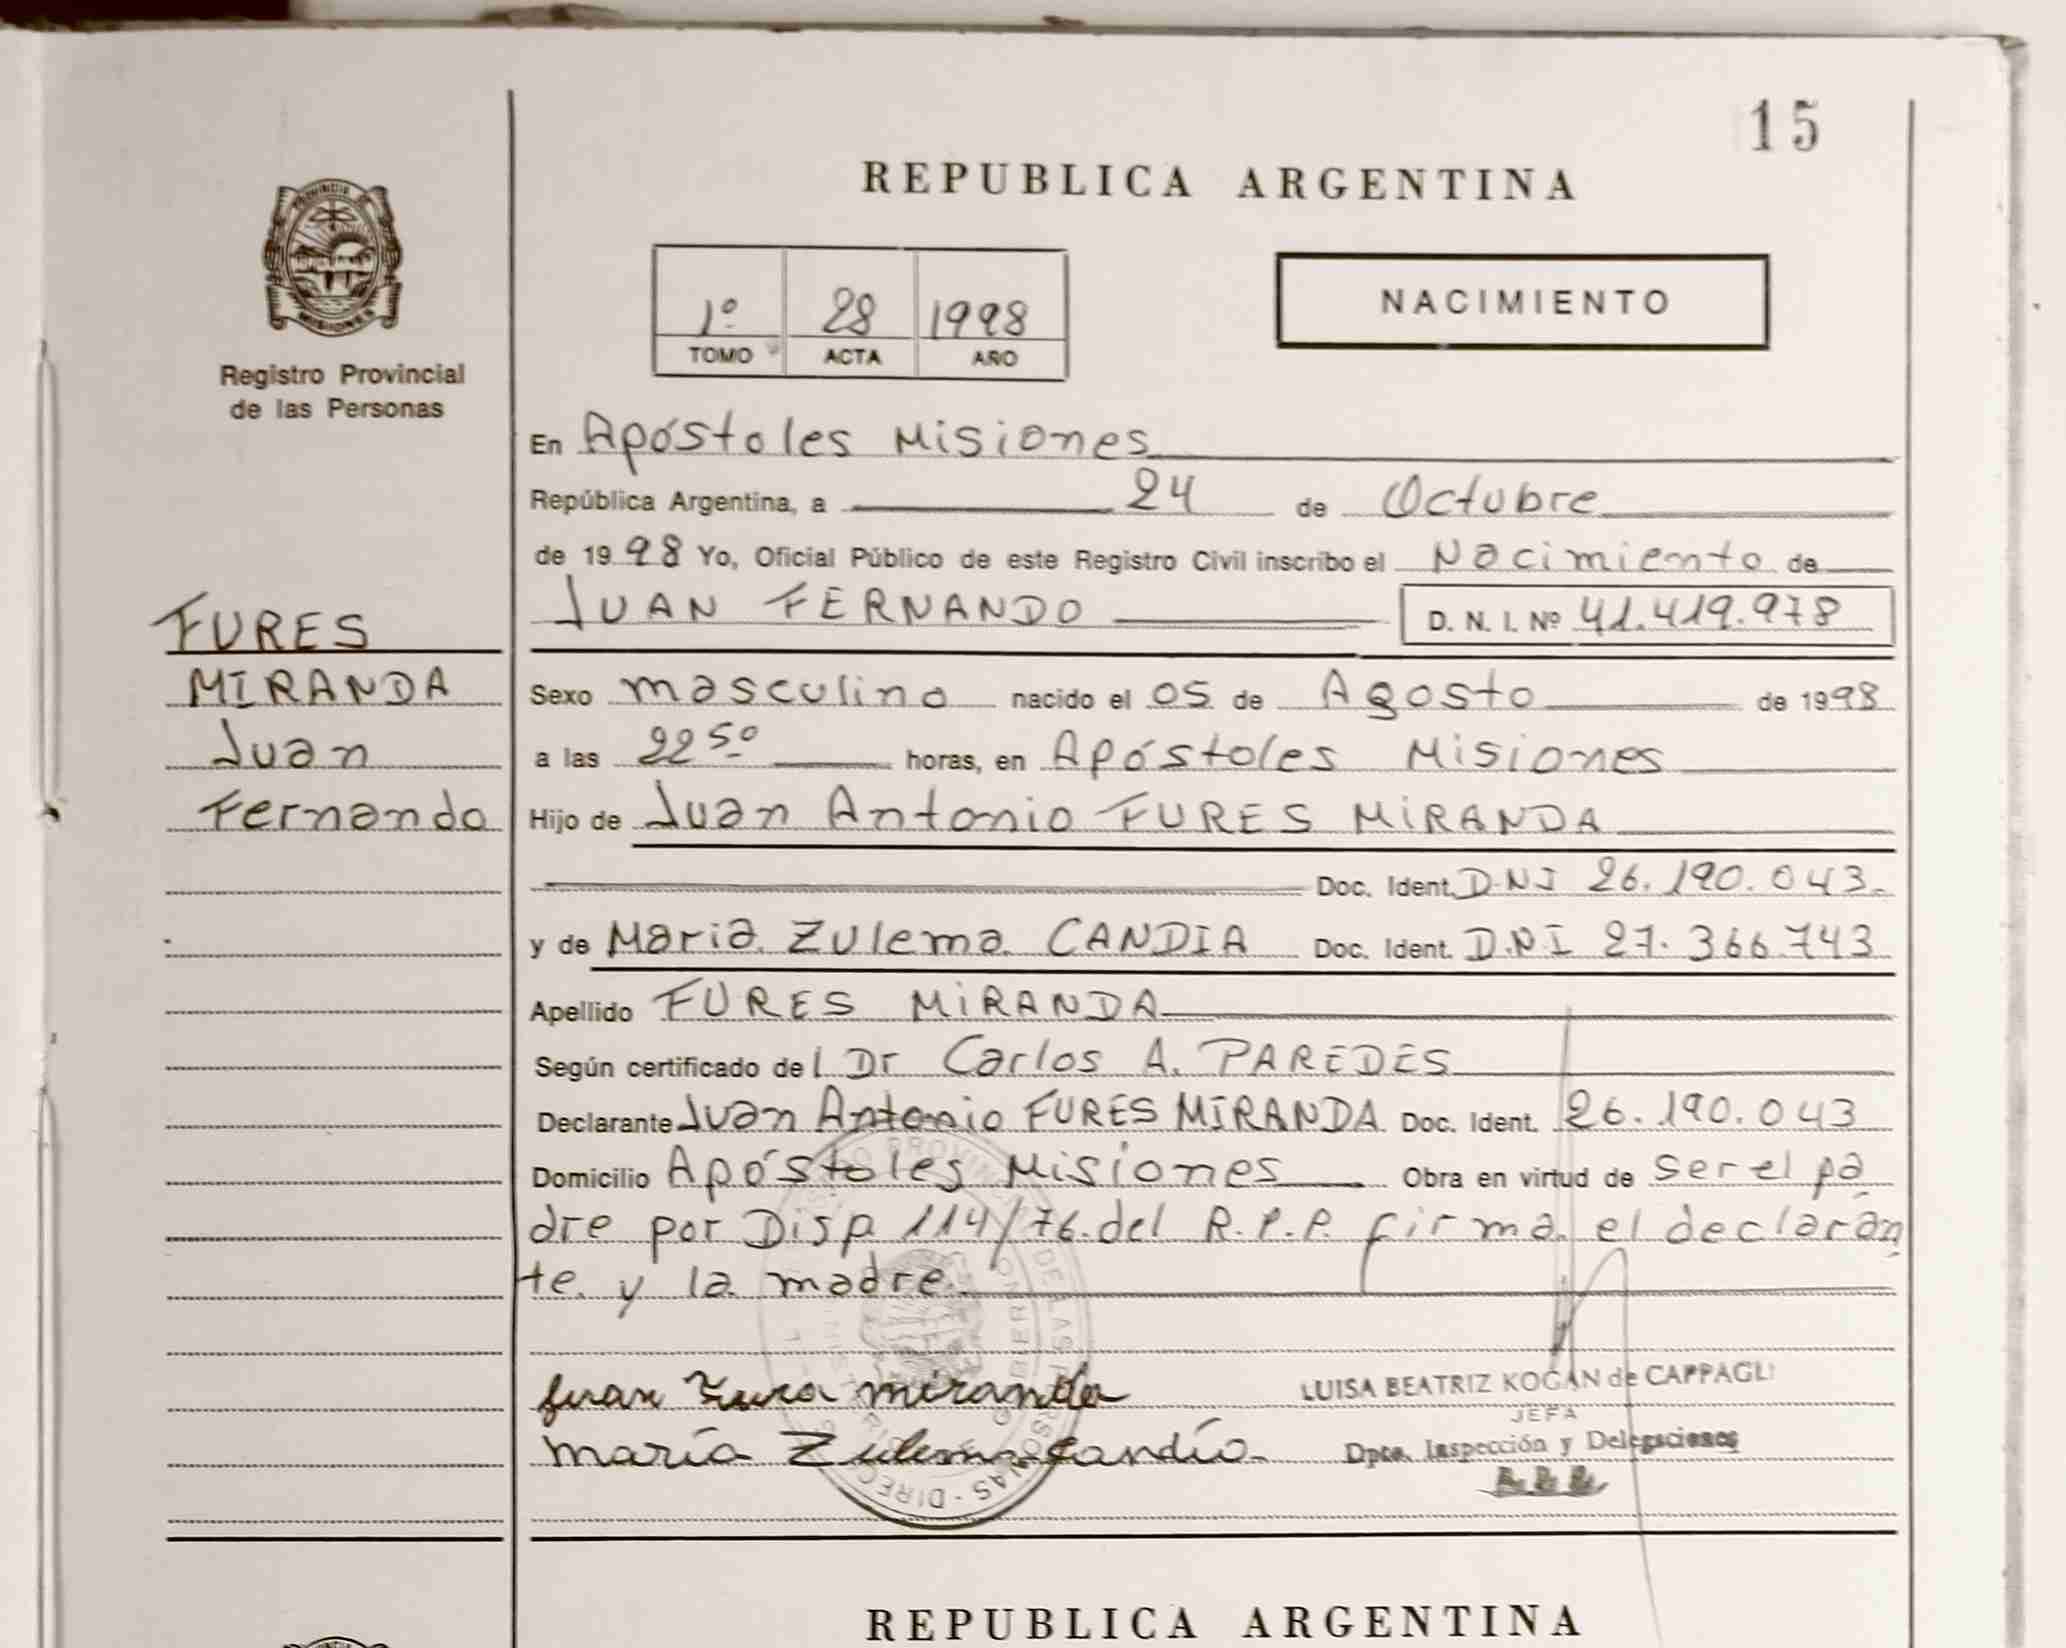 15
REPUBLICA ARGENTINA
PROVINCIA DE
MISIONES
Registro Provincial
de las Personas
1º 28 1998
TOMO ACTA AÑO
NACIMIENTO
En Apóstoles Misiones
República Argentina, a 24 de Octubre
de 1998 Yo, Oficial Público de este Registro Civil inscribo el Nacimiento de
JUAN FERNANDO D. N. I. Nº 41.419.978
FURES
MIRANDA
Juan
Fernando
Sexo masculino nacido el 05 de Agosto de 1998
a las 22 50 horas, en Apóstoles Misiones
Hijo de Juan Antonio FURES MIRANDA
Doc. Ident. D.N.I 26.190.043.
y de Maria Zulema CANDIA Doc. Ident. D.N.I 27.366.743
Apellido FURES MIRANDA
Según certificado del Dr Carlos A. PAREDES
Declarante Juan Antonio FURES MIRANDA Doc. Ident. 26.190.043
Domicilio Apóstoles Misiones Obra en virtud de ser el pa
dre por Disp 114/76 del R.P.P. firma el declaran
te y la madre.
Juan Fures miranda
maría Zulema Candia
LUISA BEATRIZ KOGAN de CAPPAGLI
JEFA
Dpto. Inspección y Delegaciones
REPUBLICA ARGENTINA